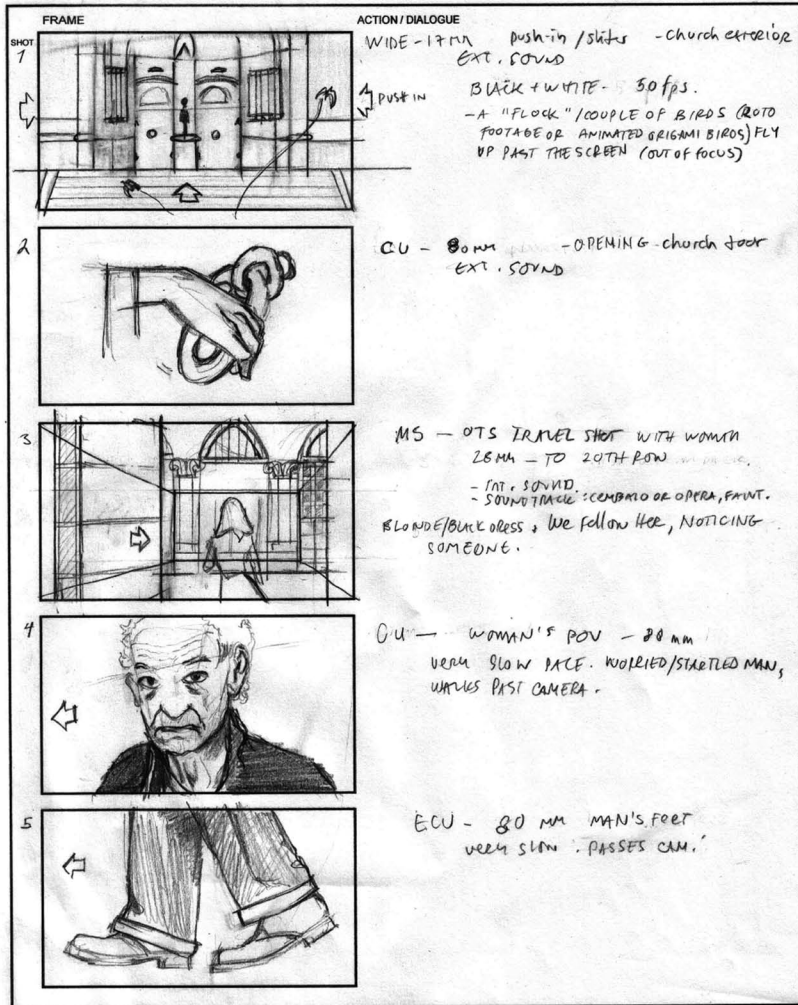 FRAME
ACTION / DIALOGUE
SHOT
1
WIDE - 17MM push-in / slider - church exterior
EXT. SOUND
PUSH IN
BLACK + WHITE - 50 fps.
- A "FLOCK" / COUPLE OF BIRDS (ROTO
FOOTAGE OR ANIMATED ORIGAMI BIRDS) FLY
UP PAST THE SCREEN (OUT OF FOCUS)
2
CU - 80 MM - OPENING church door
EXT. SOUND
3
MS - OTS TRAVEL SHOT WITH WOMAN
28MM - TO 20TH ROW
- INT. SOUND.
- SOUNDTRACK: CEMBALO OR OPERA, FAINT.
BLONDE/BLACK DRESS, We follow Her, NOTICING
SOMEONE.
4
CU — WOMAN'S POV - 80 mm
very SLOW PACE. WORRIED/STARTLED MAN,
WALKS PAST CAMERA.
5
ECU - 80 MM MAN'S feet
very slow. PASSES CAM.